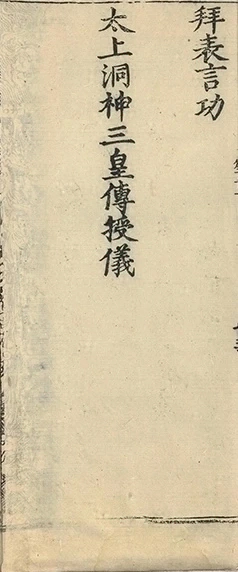 拜表言功
太上洞神三皇傳授儀